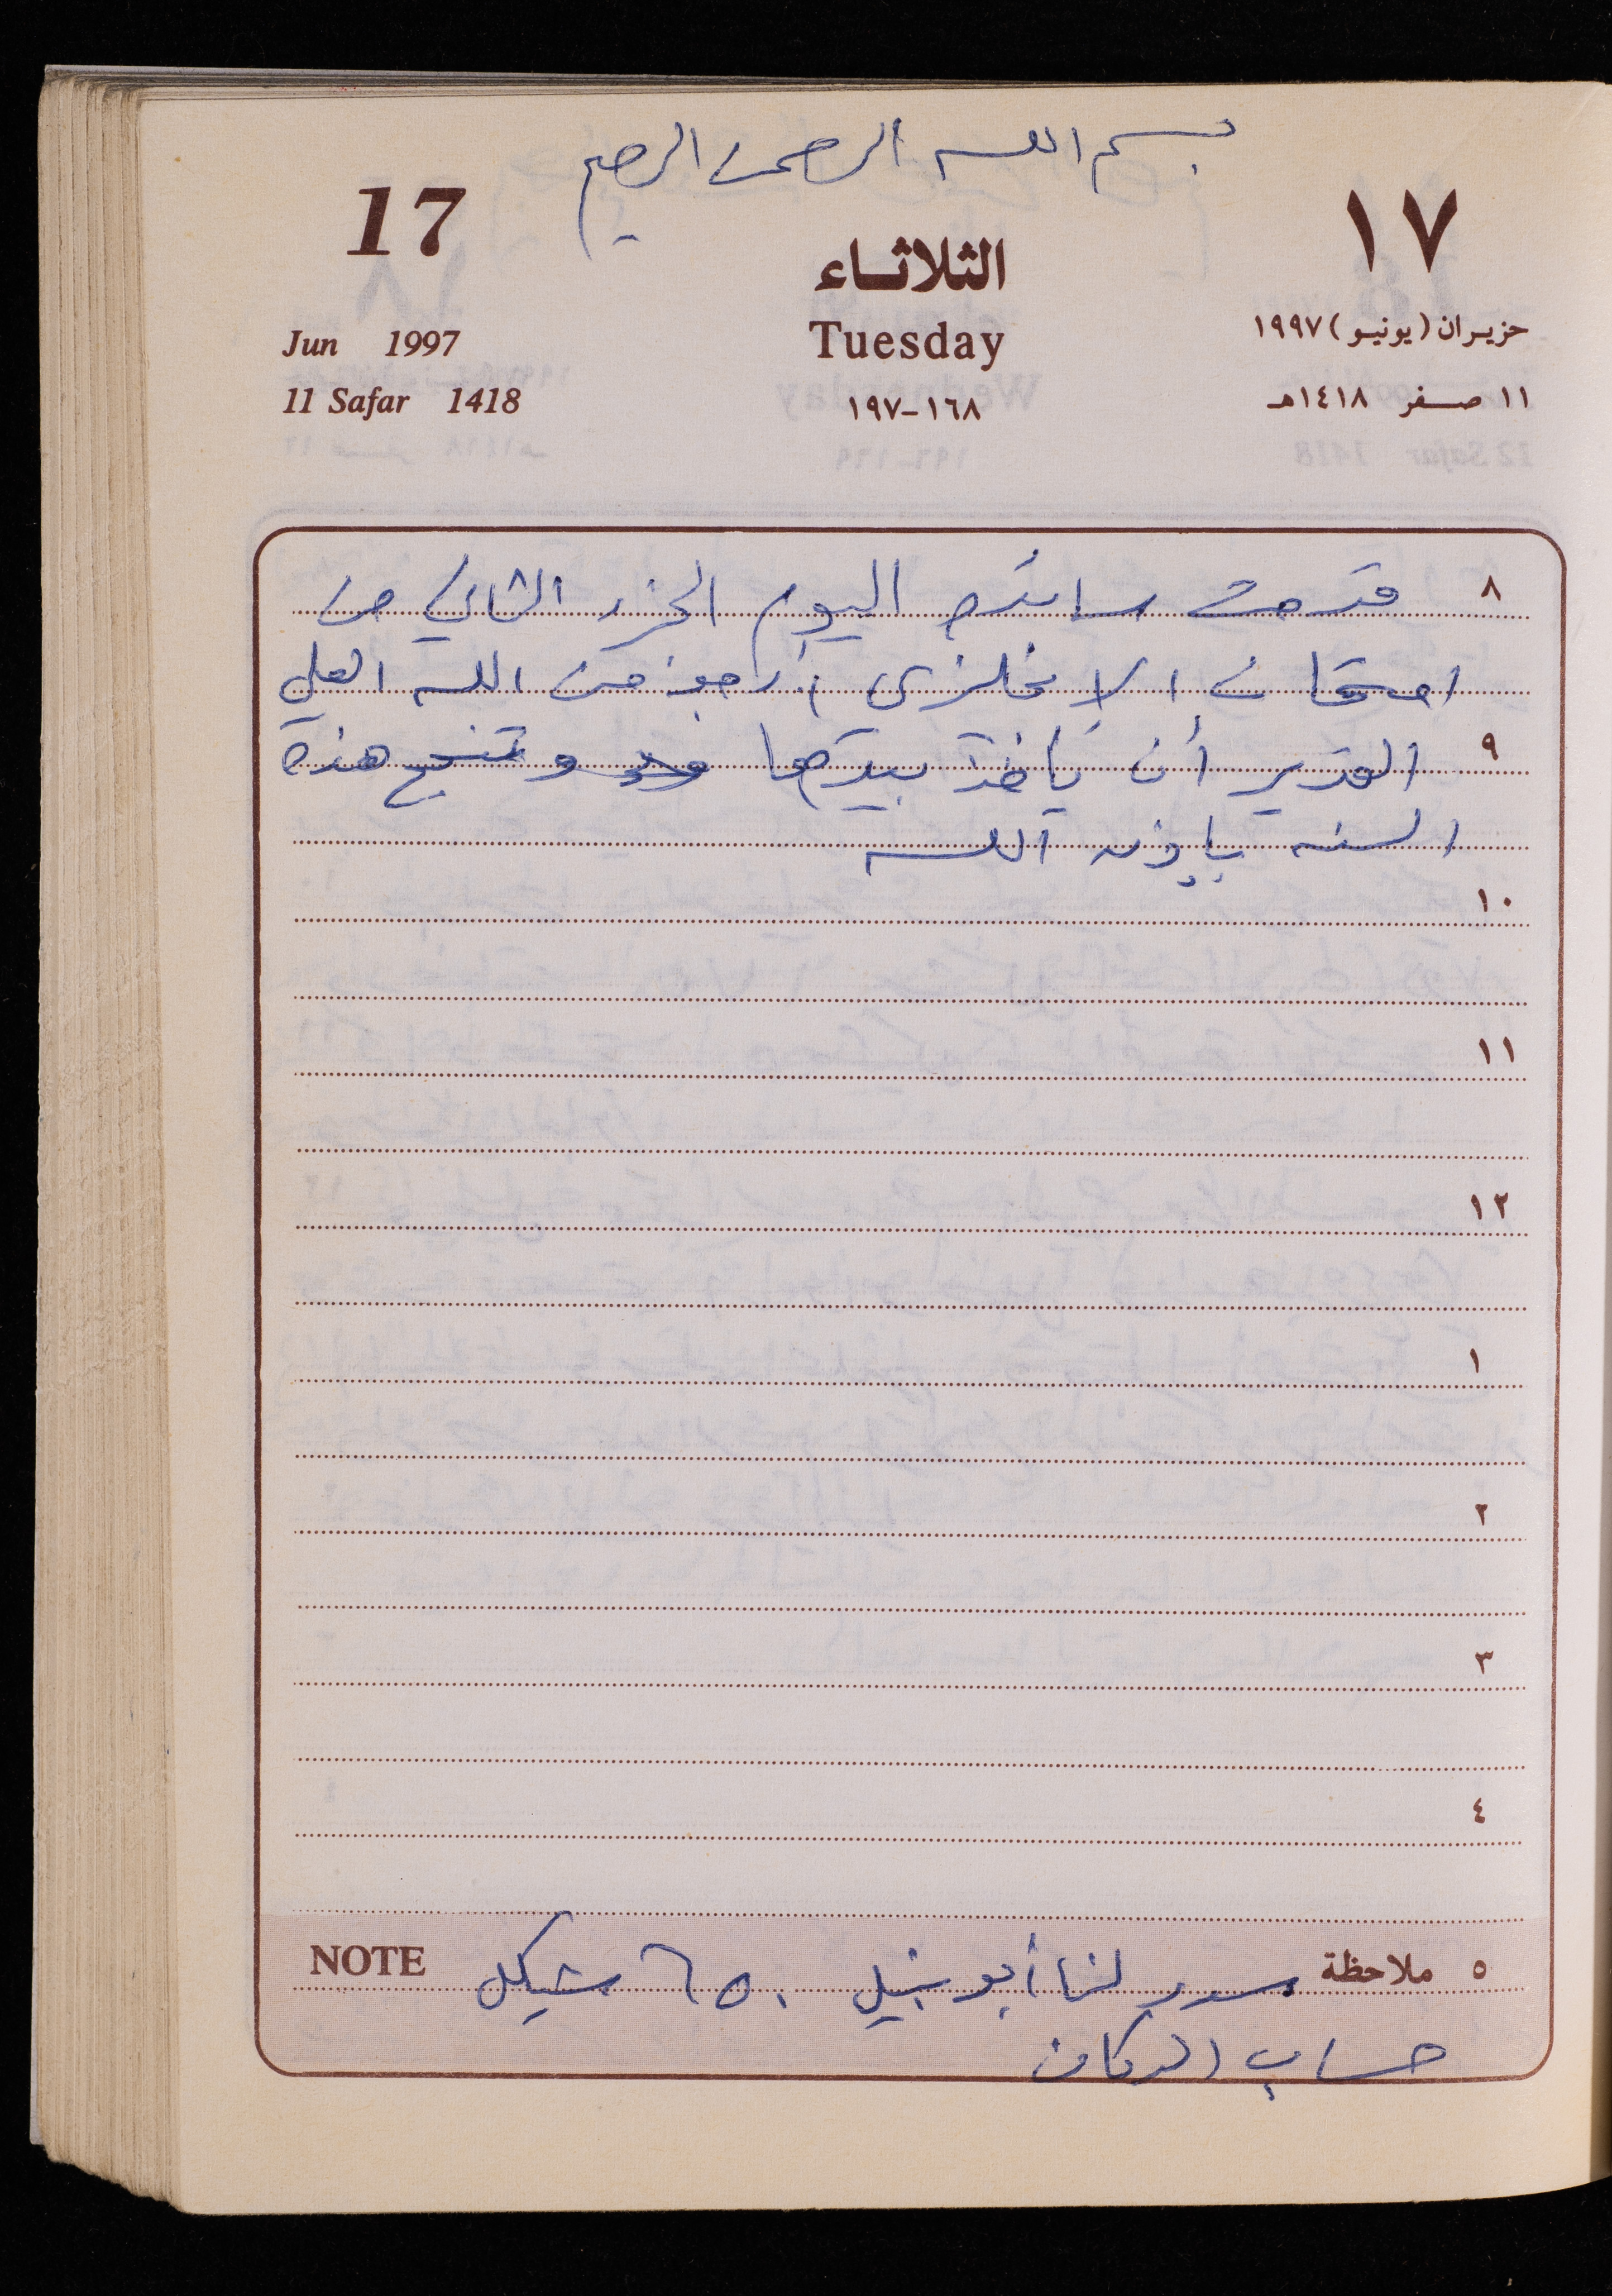 بسم الله الرحمن الرحيم
17
١٧
الثلاثاء
Jun 1997
Tuesday
حزيران (يونيو) ١٩٩٧
11 Safar 1418
١٦٨-١٩٧
١١ صفر ١٤١٨هـ
٨ قدمت اليوم الجزء الثاني من
امتحان الإنجلزي أرجو من الله العلي
٩ القدير أن يأخذ بيدها وتنجح هذه
السنه بإذن الله
١٠
١١
١٢
١
٢
٣
٤
٥ ملاحظة لنا أبو نبيل ٦٥٠ شيكل NOTE
حساب الدكان